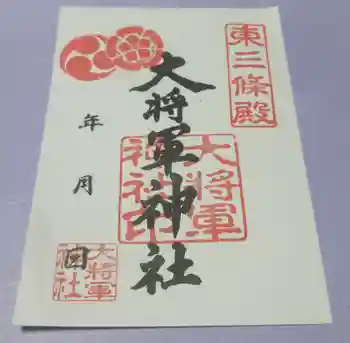 東三條殿
大将軍神社
大将軍
神社印
年月日
大将軍
神社